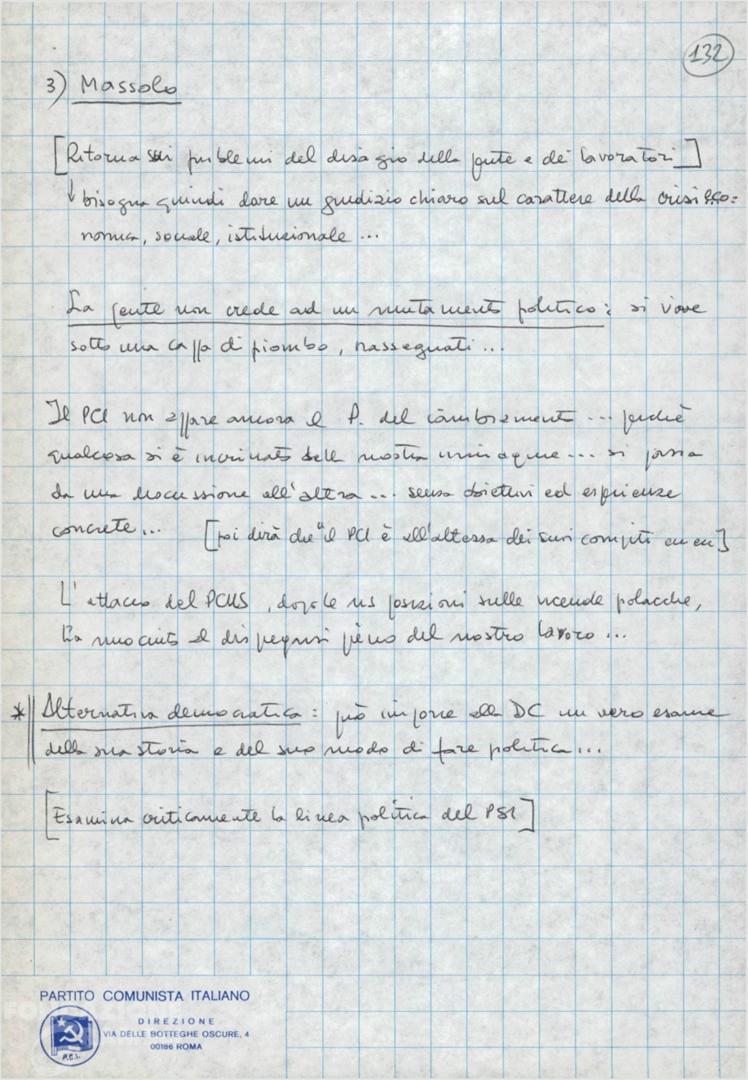 132
3) Massolo
[Ritorna sui problemi del disagio della gente e dei lavoratori]
↓ bisogna quindi dare un giudizio chiaro sul carattere della crisi eco=
nomica, sociale, istituzionale ...
La gente non crede ad un mutamento politico: si vive
sotto una cappa di piombo, rassegnati ...
Il PCI non appare ancora il P. del cambiamento ... perché
qualcosa si è incrinato della nostra immagine ... si passa
da una discussione all'altra ... senza obiettivi ed esperienze
concrete ... [poi dirà che "il PCI è all'altezza dei suoi compiti]
L'attacco del PCUS, dopo le ns posizioni sulle vicende polacche,
ha nuociuto al dispiegarsi pieno del nostro lavoro ...
* Alternativa democratica: può imporre alla DC un vero esame
della sua storia e del suo modo di fare politica ...
[Esamina criticamente la linea politica del PSI]
PARTITO COMUNISTA ITALIANO
DIREZIONE
VIA DELLE BOTTEGHE OSCURE, 4
00186 ROMA
P.C.I.